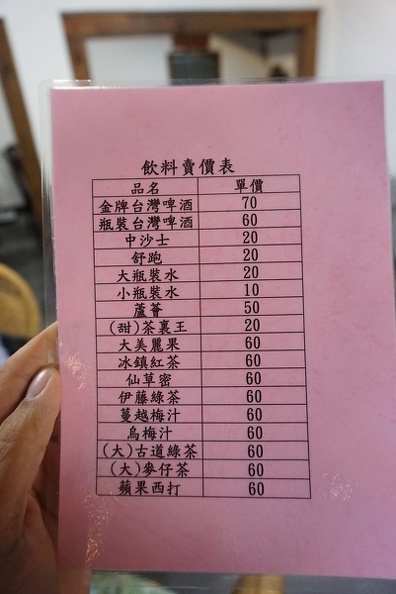 飲料賣價表
品名 單價
金牌台灣啤酒 70
瓶裝台灣啤酒 60
中沙士 20
舒跑 20
大瓶裝水 20
小瓶裝水 10
蘆薈 50
(甜)茶裏王 20
大美麗果 60
冰鎮紅茶 60
仙草密 60
伊藤綠茶 60
蔓越梅汁 60
烏梅汁 60
(大)古道綠茶 60
(大)麥仔茶 60
蘋果西打 60